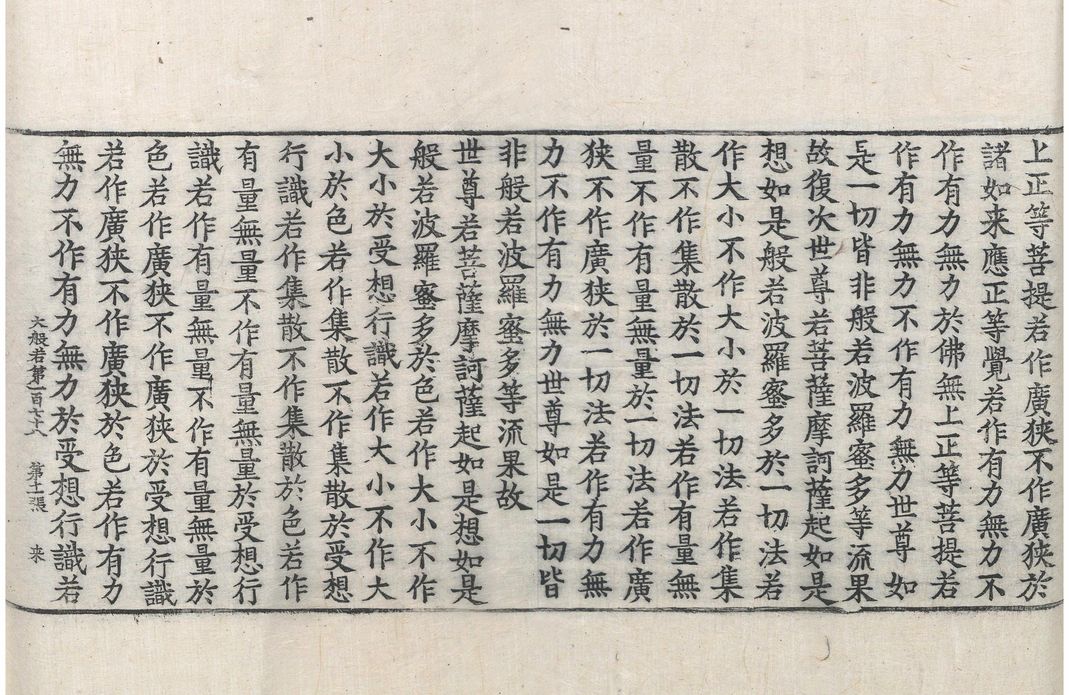 上正等菩提若作廣狹不作廣狹於
諸如来應正等覺若作有力無力不
作有力無力於佛無上正等菩提若
作有力無力不作有力無力世尊如
是一切皆非般若波羅蜜多等流果
故復次世尊若菩薩摩訶薩起如是
想如是般若波羅蜜多於一切法若
作大小不作大小於一切法若作集
散不作集散於一切法若作有量無
量不作有量無量於一切法若作廣
狹不作廣狹於一切法若作有力無
力不作有力無力世尊如是一切皆
非般若波羅蜜多等流果故
世尊若菩薩摩訶薩起如是想如是
般若波羅蜜多於色若作大小不作
大小於受想行識若作大小不作大
小於色若作集散不作集散於受想
行識若作集散不作集散於色若作
有量無量不作有量無量於受想行
識若作有量無量不作有量無量於
色若作廣狹不作廣狹於受想行識
若作廣狹不作廣狹於色若作有力
無力不作有力無力於受想行識若
大般若第一百七十八 第十一張 来